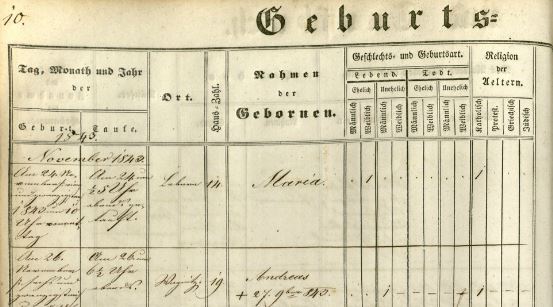 10.
Geburts=
Tag, Monath und Jahr
der
Geburt. Taufe.
1843.
Ort.
Haus-Zahl.
Nahmen
der
Gebornen.
Geschlechts- und Geburtsart.
Lebend. Todt.
Ehelich Unehelich Ehelich Unehelich
Männlich Weiblich Männlich Weiblich Männlich Weiblich Männlich Weiblich
Religion
der
Aeltern.
Katholisch Protest. Griechisch Jüdisch
November 1843.
Am 24. No- Am 24 um
5 Uhr 14. Maria . 1 . . . . . . 1 . . .
1843 um 10 abends ge-
Uhr tauft.
tag
Am 26. Am 26 um
November 6½ Uhr
abends. 19 Andreas
+ 27. 9ber 843. . . 1 1